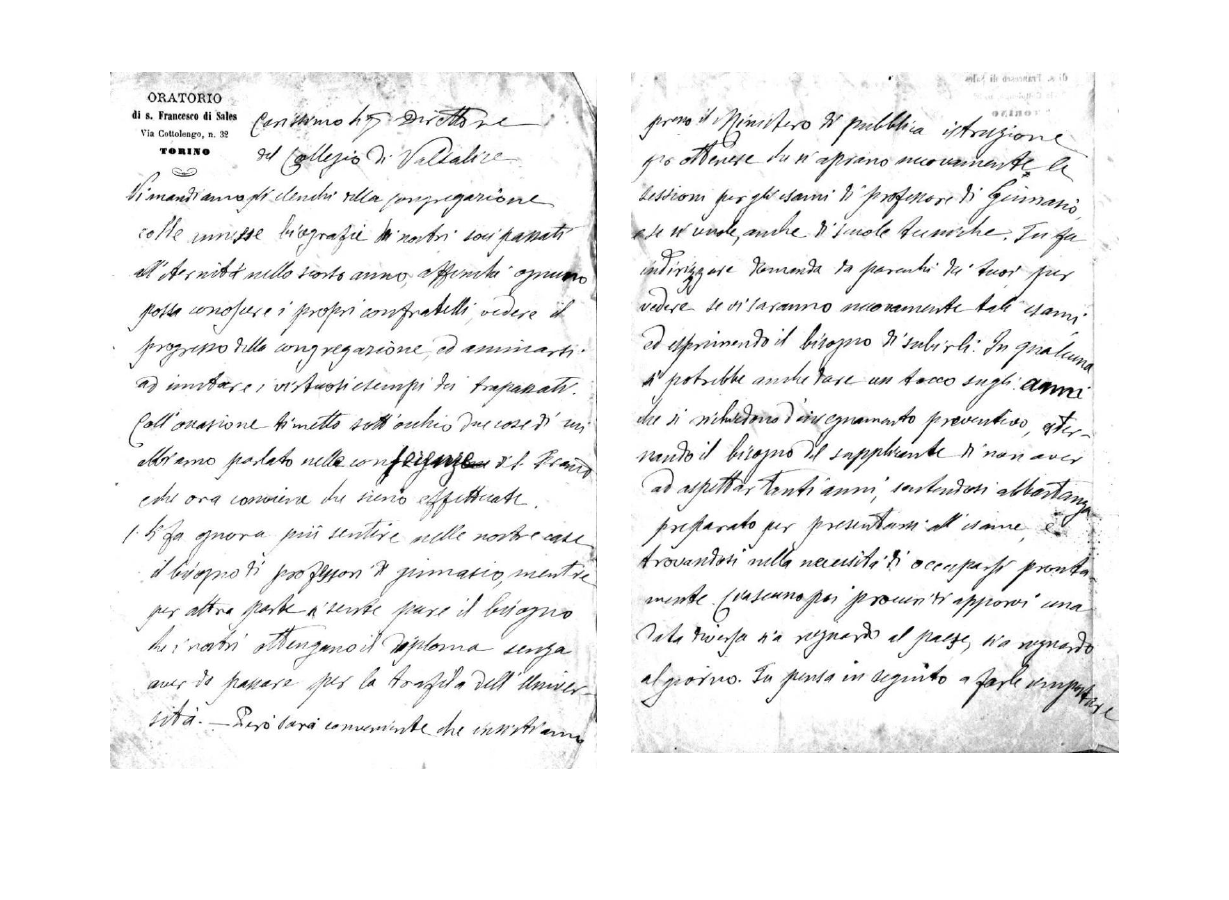 ORATORIO
di s. Francesco di Sales
Via Cottolengo, n. 32
TORINO
Carissimo Sig Direttore
del Collegio di Valsalice
Ti mandiamo gli elenchi della congregazione
colle unisse biografie di nostri soci passati
all'eternità nello scorso anno, affinchè ognuno
possa conoscere i propri confratelli, vedere il
progresso della congregazione, ed animarsi
ad imitare i virtuosi esempi dei trapassati.
Coll'occasione ti metto sott'occhio due cose di cui
abbiamo parlato nelle conferenze di S. Franco
e che ora conviene che sieno effettuate.
1. Si fa ognora più sentire nelle nostre case
il bisogno di professori di ginnasio, mentre
per altra parte si sente pure il bisogno
che i nostri ottengano il diploma senza
aver da passare per la trafila dell'Univer-
sità. — Però sarà conveniente che insistiamo
presso il Ministero di pubblica istruzione
per ottenere che si aprano nuovamente le
sessioni per gli esami di professore di Ginnasio,
e se si vuole, anche di scuole tecniche. Tu fa
indirizzare domanda da parecchi dei tuoi per
vedere se vi saranno nuovamente tali esami
ed esprimendo il bisogno di subirli. In qualcuna
si potrebbe anche dare un tocco sugli anni
che si richiedono d'insegnamento preventivo, ester-
nando il bisogno del supplicante di non aver
ad aspettar tanti anni, sentendosi abbastanza
preparato per presentarsi all'esame, e
trovandosi nella necessità di occuparsi pronta-
mente. Ciascuno poi procuri di apporvi una
data diversa sia riguardo al paese, sia riguardo
al giorno. Tu pensa in seguito a farle impostare